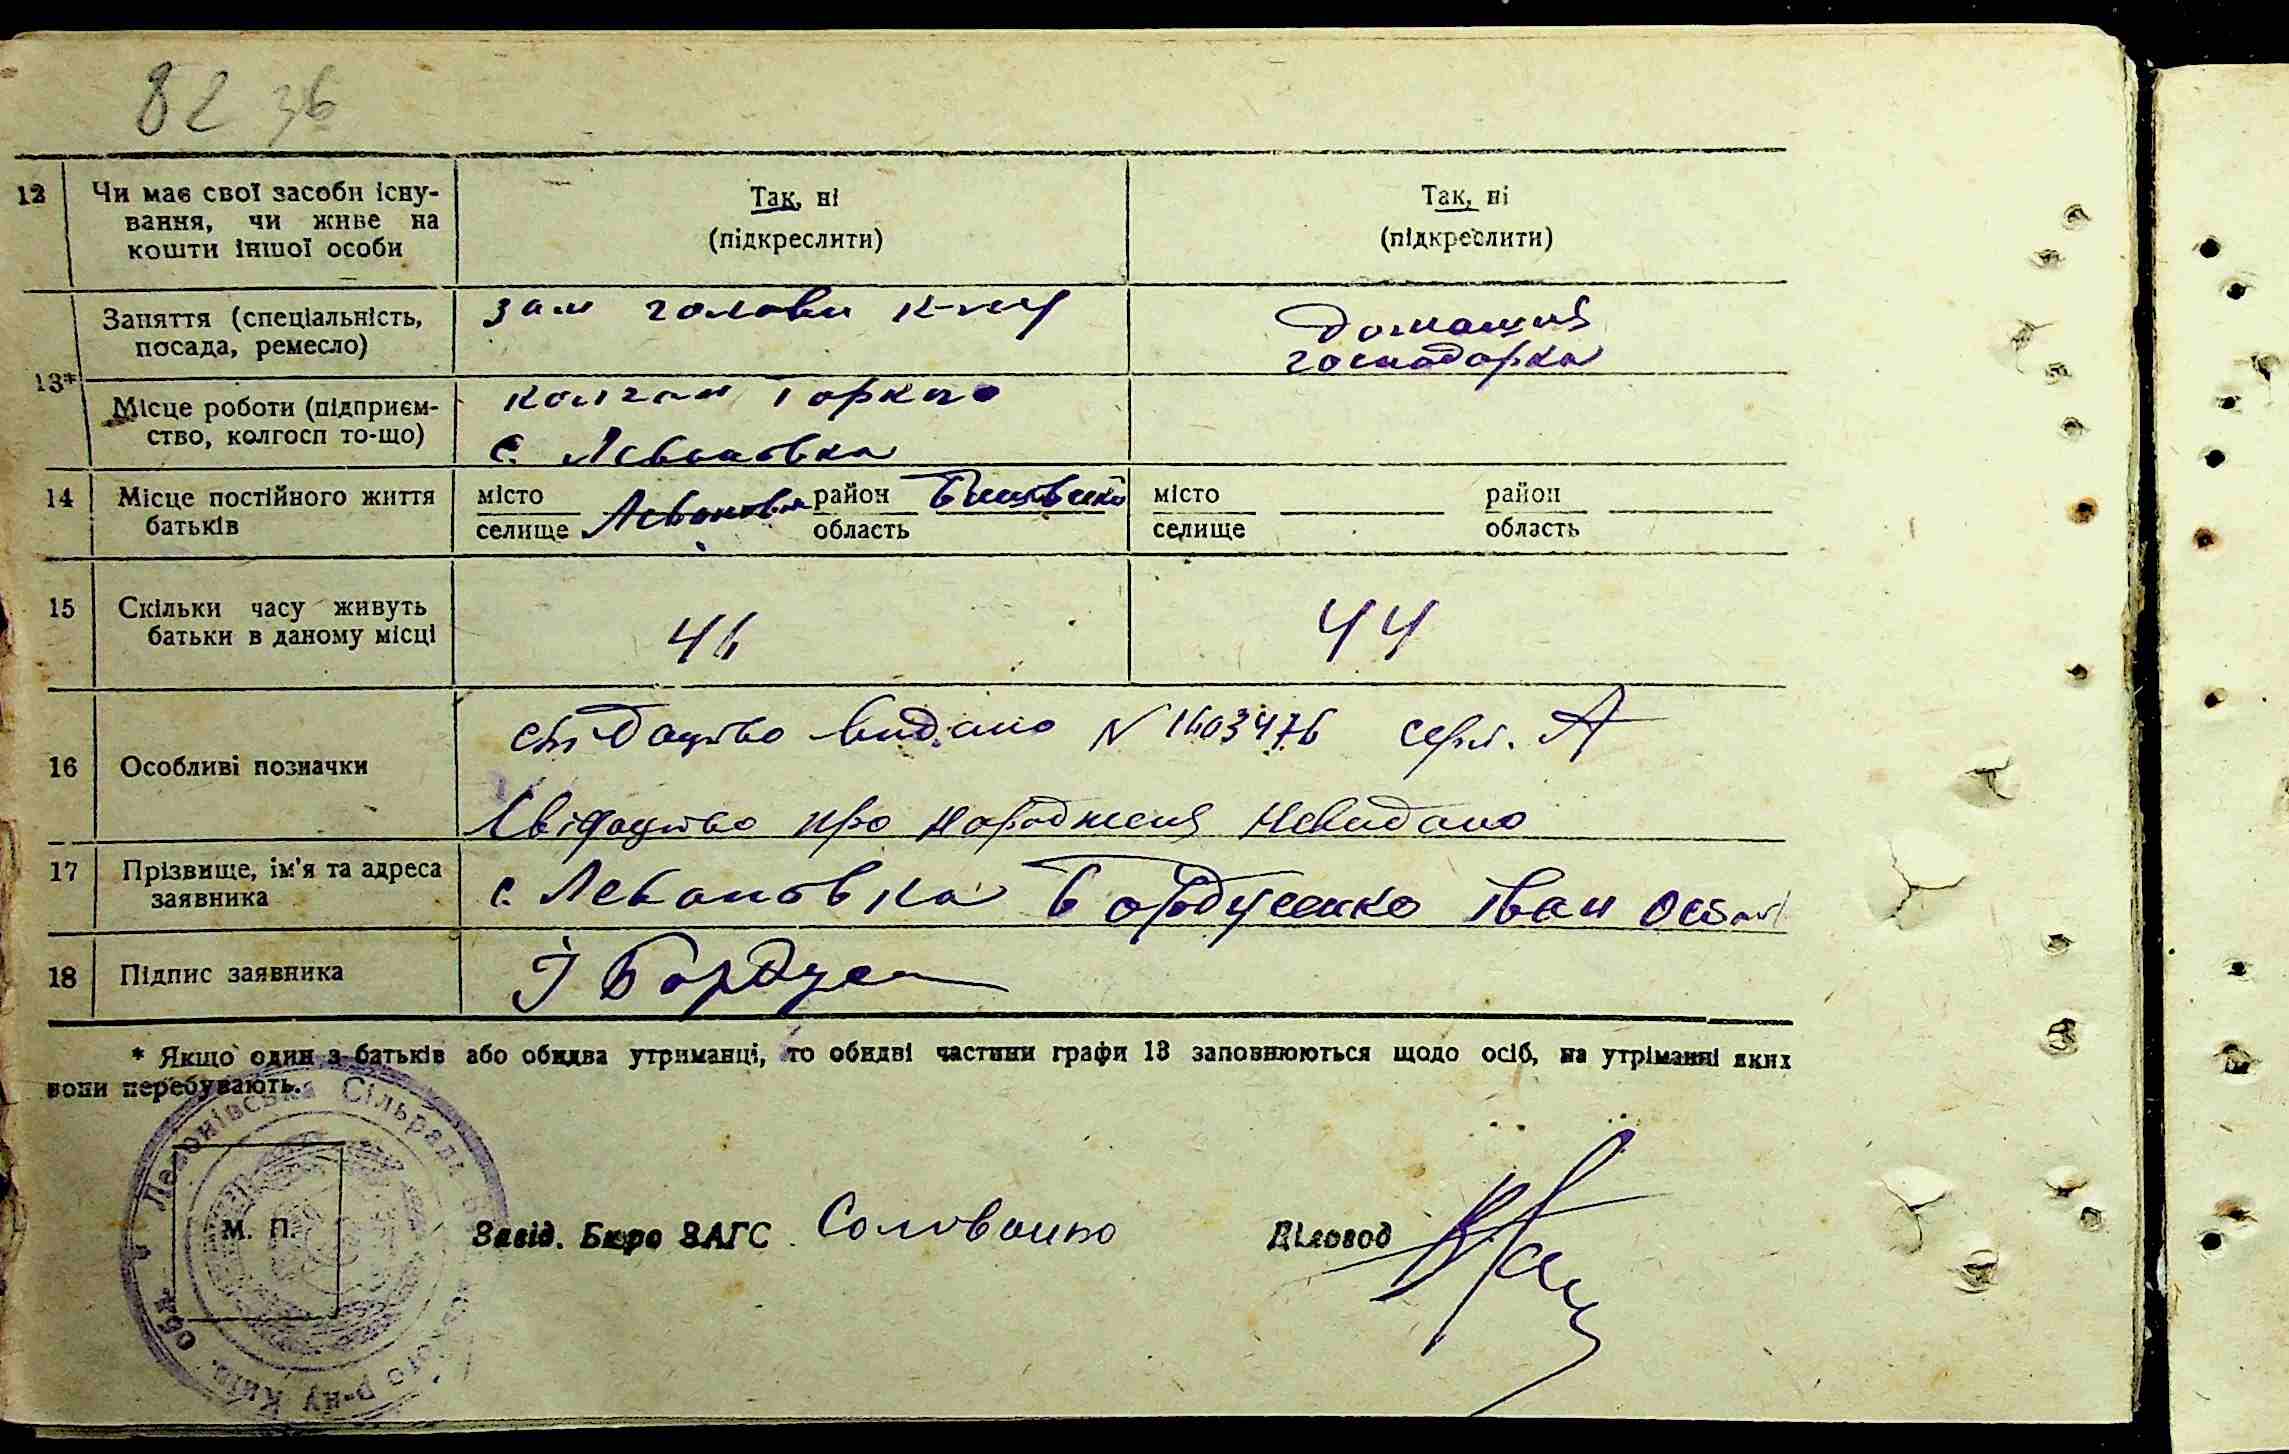 82 зв
12 Чи має свої засоби існу-
вання, чи живе на
кошти іншої особи
Так, ні
(підкреслити)
Так, ні
(підкреслити)
13*
Заняття (спеціальність,
посада, ремесло)
зам голови к-пу
домашня
господарка
Місце роботи (підприєм-
ство, колгосп то-що)
Горкого
с. Левановка
14 Місце постійного життя
батьків
місто
селище
Левановка
район
область
місто
селище
район
область
15 Скільки часу живуть
батьки в даному місці
46
44
16 Особливі позначки
свідацтво видано N 1603476 серія. А
Свідацтво про народженя невидано
17 Прізвище, ім'я та адреса
заявника
с. Левановка Бордусенко Іван
18 Підпис заявника
І Бордусе
* Якщо один з батьків або обидва утриманці, то обидві частини графи 13 заповнюються щодо осіб, на утріманні яких
вони перебувають.
Левонівська Сільрада
р-ну Київ. Обл.
М. П.
Завід. Бюро ЗАГС
Діловод